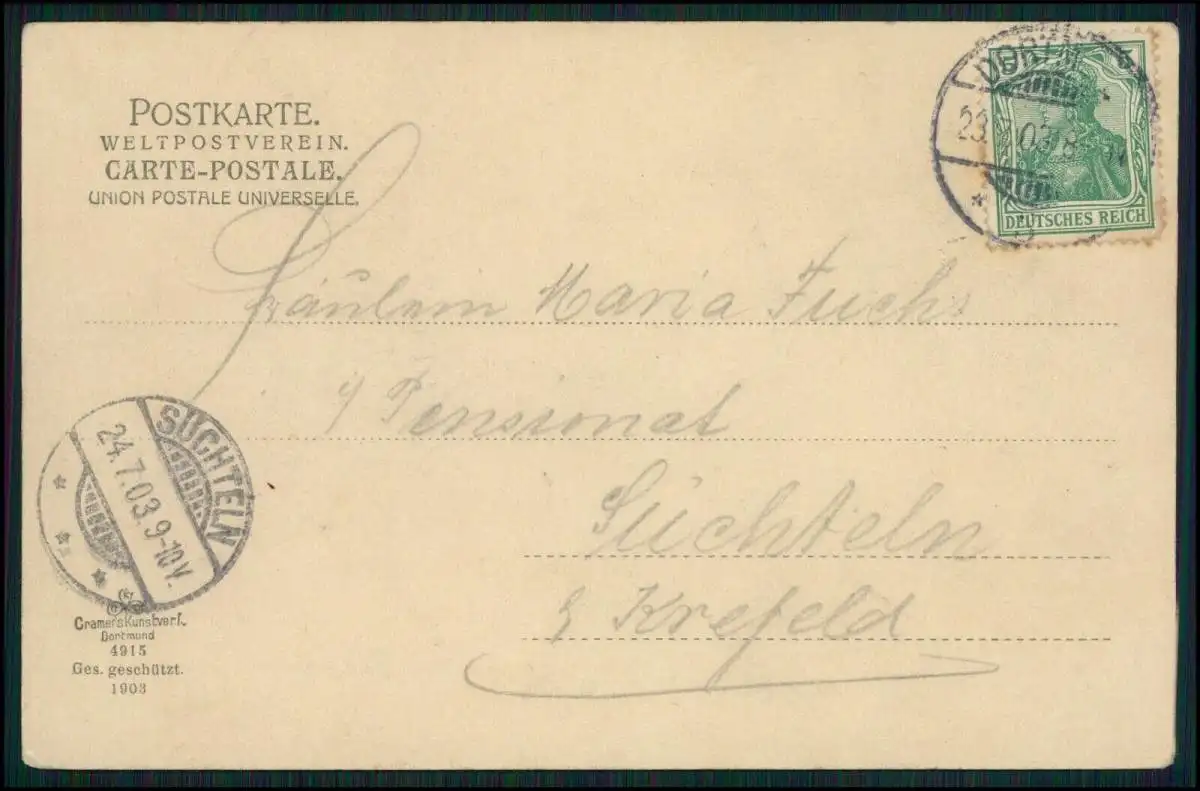 POSTKARTE.
WELTPOSTVEREIN.
CARTE-POSTALE.
UNION POSTALE UNIVERSELLE.
23. 03 8
DEUTSCHES REICH
Fräulein Maria Fuchs
Pensionat
Süchteln
Krefeld
SÜCHTELN
24.7.03.9-10V.
Cramers Kunstverl.
Dortmund
4915
Ges. geschützt.
1903